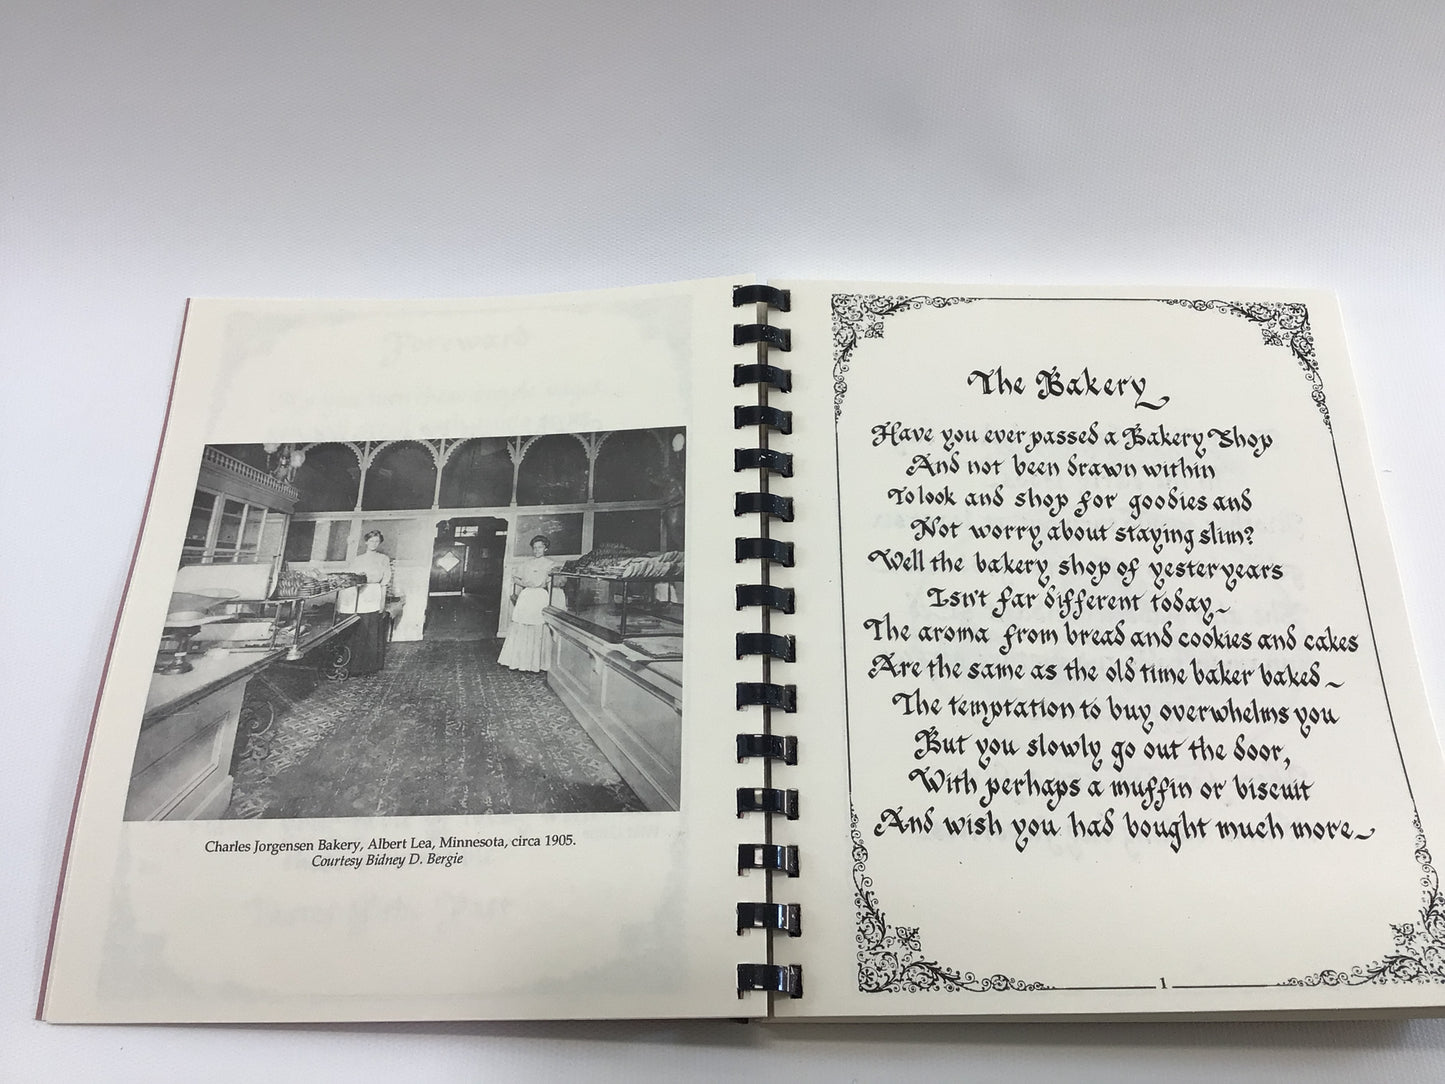 Foreward
Charles Jorgensen Bakery, Albert Lea, Minnesota, circa 1905.
Courtesy Bidney D. Bergie
The Bakery
Have you ever passed a Bakery Shop
And not been drawn within
To look and shop for goodies and
Not worry about staying slim?
Well the bakery shop of yesteryears
Isn't far different today~
The aroma from bread and cookies and cakes
Are the same as the old time baker baked~
The temptation to buy overwhelms you
But you slowly go out the door,
With perhaps a muffin or biscuit
And wish you had bought much more~
1